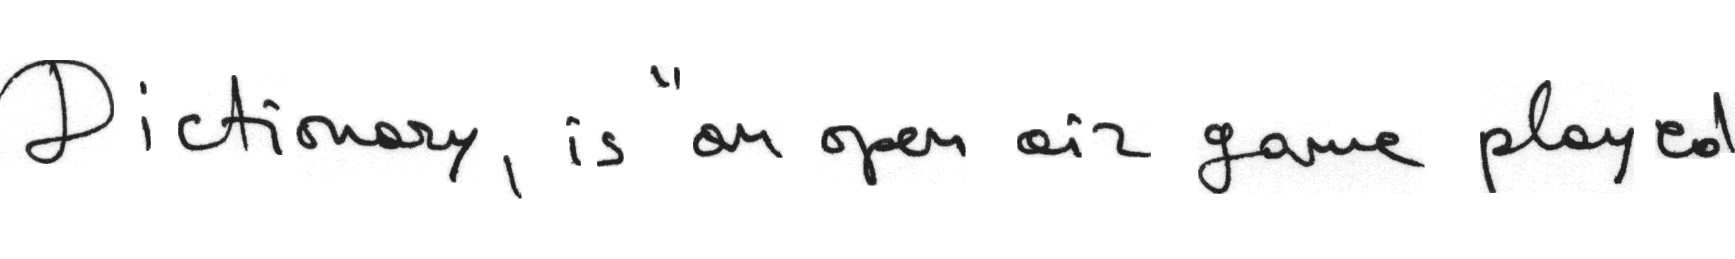 Dictionary, is "an open air game played